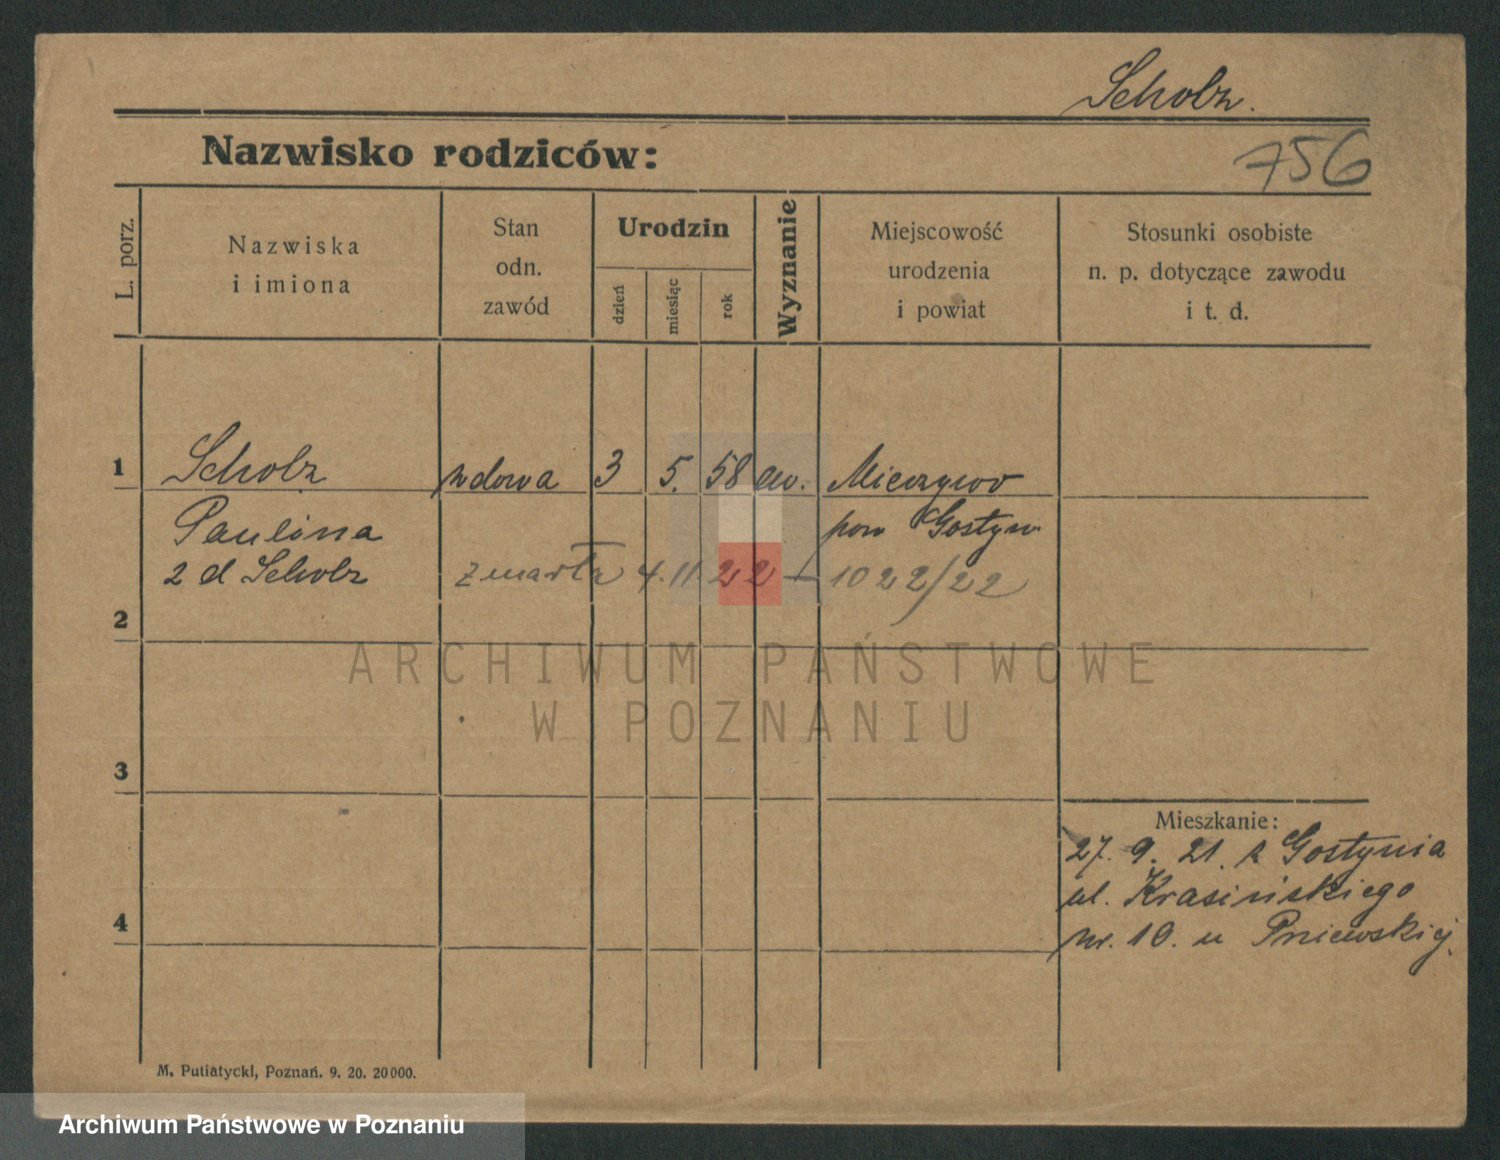 Scholz.
Nazwisko rodziców:
756
L. porz.
Nazwiska
i imiona
Stan
odn.
zawód
Urodzin
dzień
miesiąc
rok
Wyznanie
Miejscowość
urodzenia
i powiat
Stosunki osobiste
n. p. dotyczące zawodu
i t. d.
1
Scholz wdowa 3 5. 58 ew.
Paulina pow Gostyń
2 d Scholz zmarła 4.11.22 – 1022/22
2
ARCHIWUM PAŃSTWOWE
W POZNANIU
3
Mieszkanie:
27. 9. 21. z Gostynia
ul. Krasińskiego
nr. 10. u Pniewskiej.
4
M. Putiatycki, Poznań. 9. 20. 20000.
Archiwum Państwowe w Poznaniu